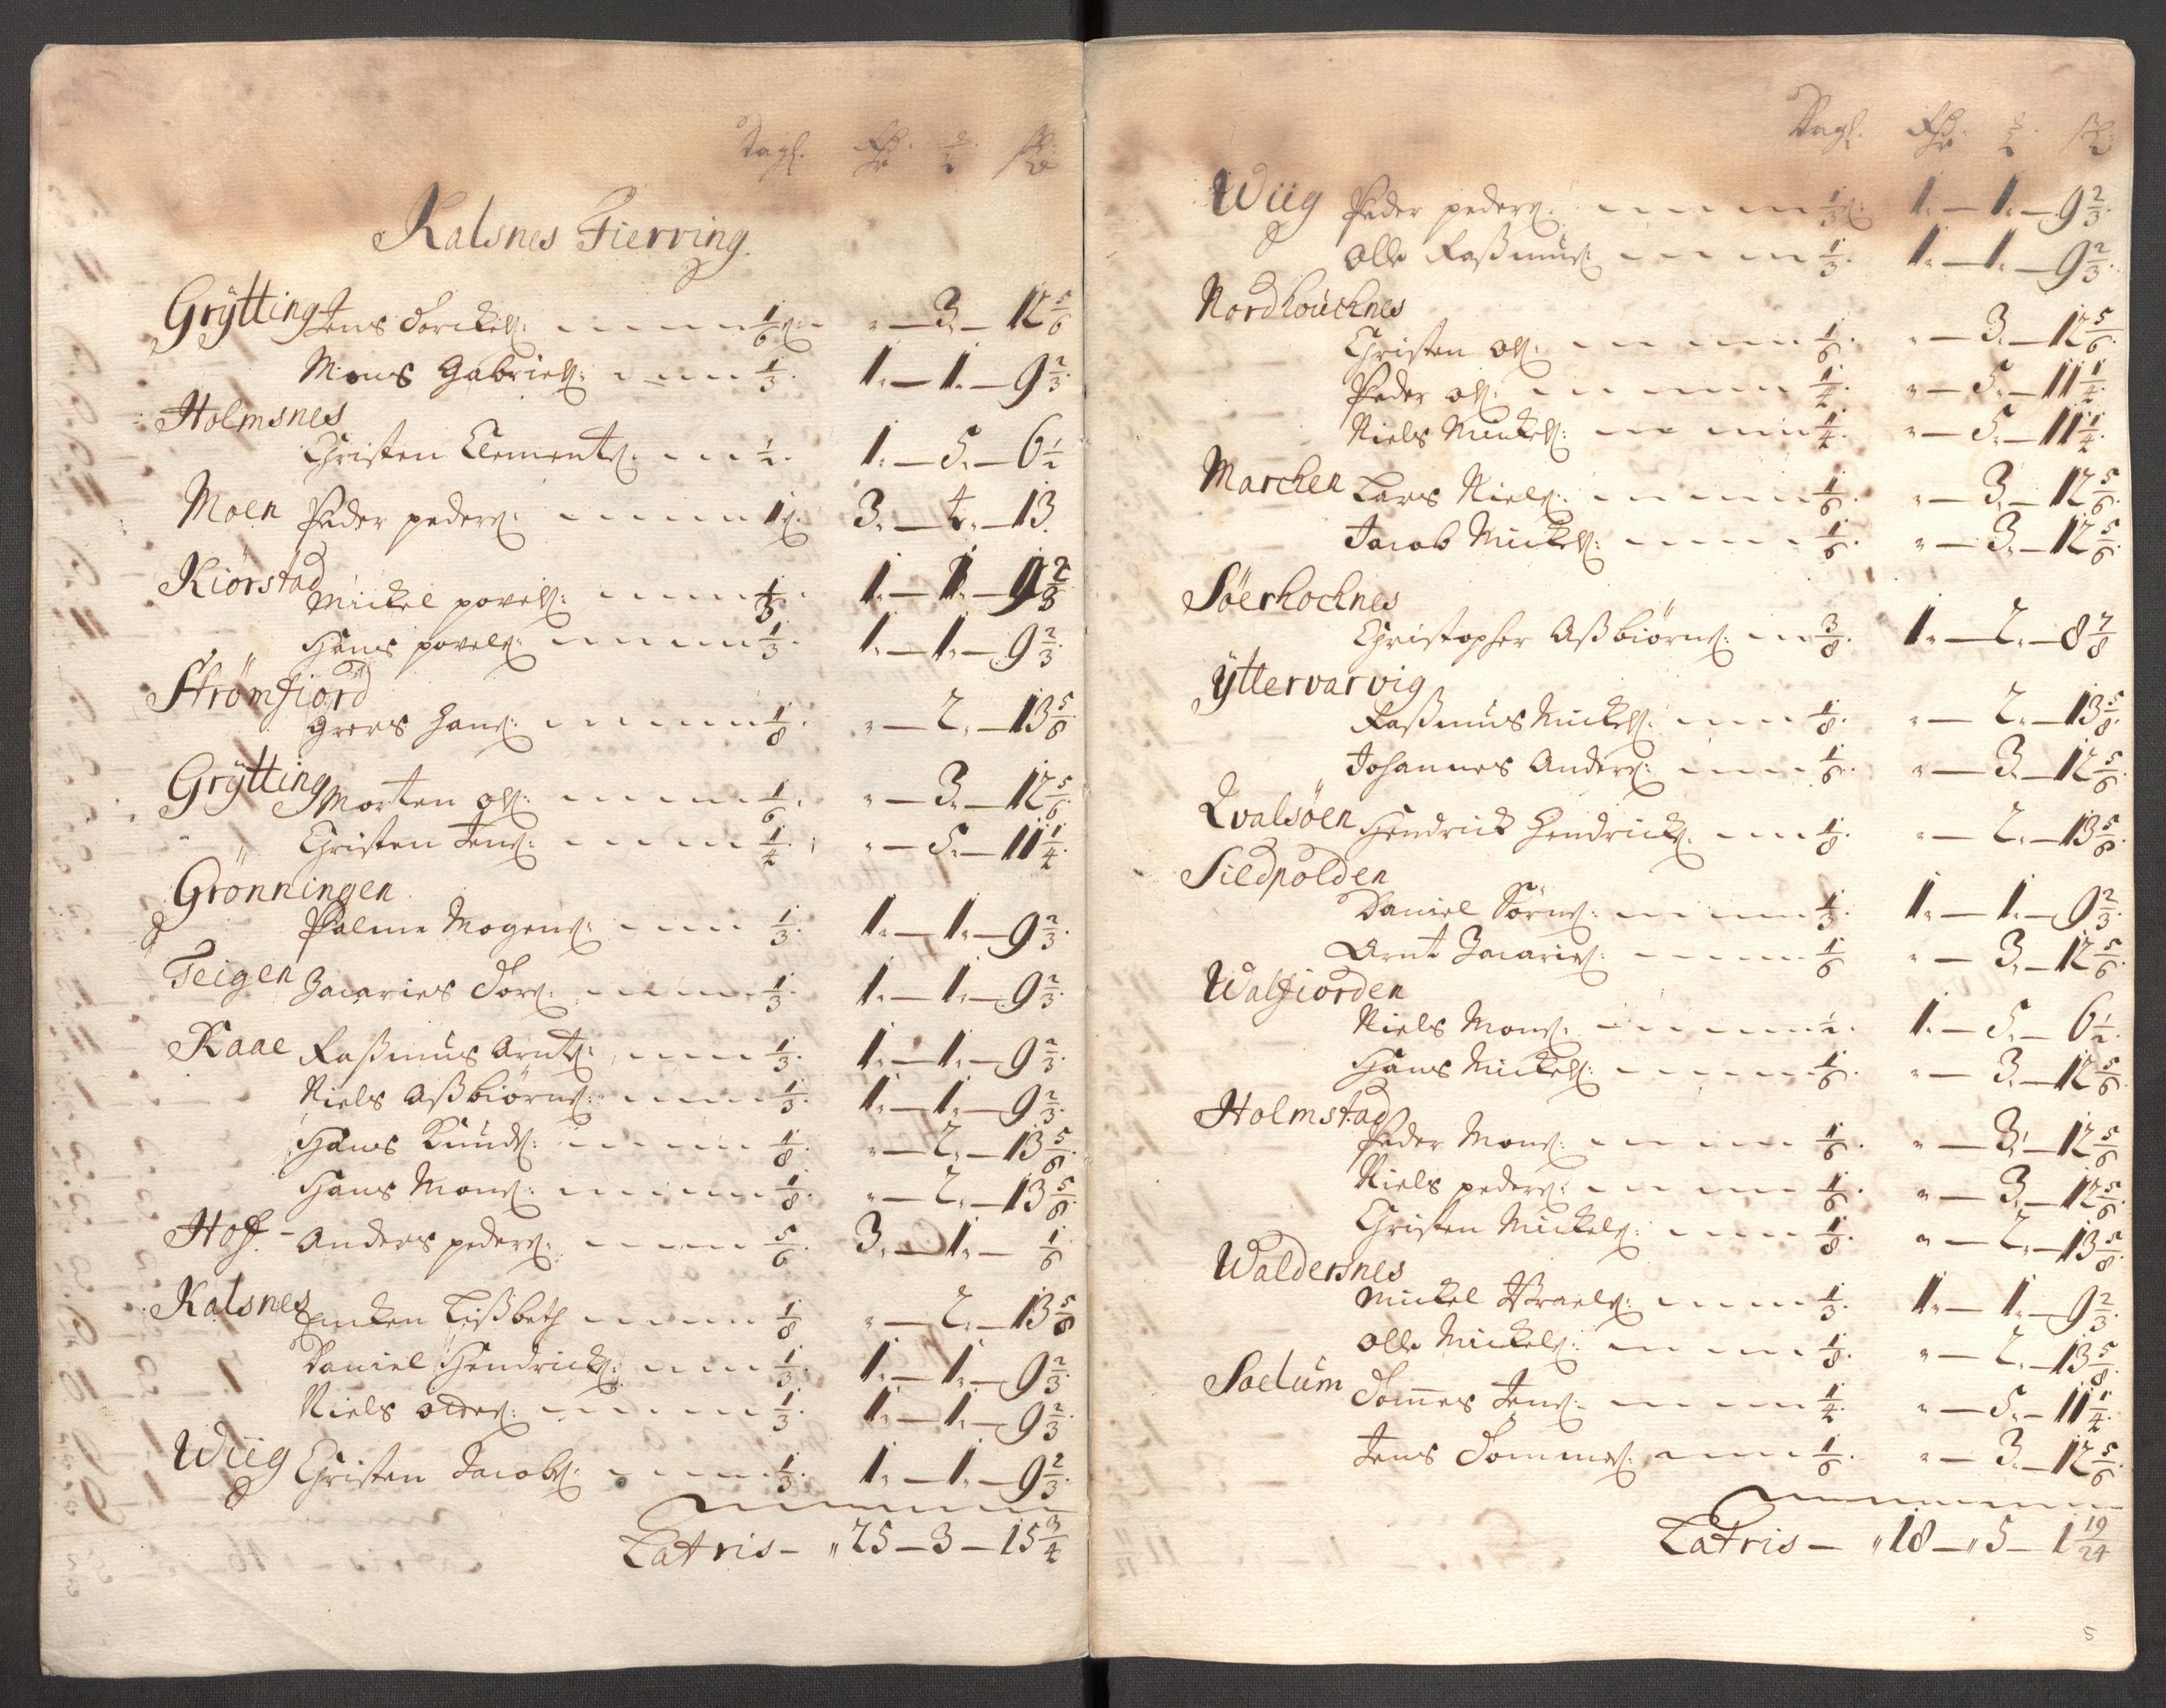 Kalsnes Fierring.
Grÿtting Jens Torckels: 1/6 " — 3. — 12 5/6
Mons Gabriels: 1/3. 1. — 1. — 9 2/3.
Holmsnes
Christen Clements: 1/2. 1. — 5. — 6 1/2
Moen Peder peders: 1 3. — 4. — 13.
Kiørstad
Mickel povels: 1/3 1. — 1. — 9 2/3
Hans povels: 1/3. 1. — 1. — 9 2/3
Strømfiord
Grers Hans: 1/8. " — 2. — 13 5/8
Grÿtting Morten ols: 1/6. " — 3. — 12 5/6
Christen Jens: 1/4. " — 5. — 11 1/4.
Grønningen
Palme Mogens: 1/3. 1. — 1. — 9 2/3.
Teigen Zacaries Tors: 1/3. 1. — 1. — 9 2/3.
Kaae Rasmus Arnts: 1/3. 1. — 1. — 9 2/3.
Niels Asbiørns: 1/3. 1. — 1. — 9 2/3.
Hans Knuds: 1/8. " — 2. — 13 5/8.
Hans Mons: 1/8. " — 2. — 13 5/8.
Hof. Anders peders: 5/6. 3. — 1. — 1/6
Kalsnes Encken Lisbeth 1/8 " — 2. — 13 5/8
Daniel Hendricks: 1/3. 1. — 1. — 9 2/3.
Niels 1/3. 1. — 1. — 9 2/3.
Wiig Christen Jacobs: 1/3. 1. — 1. — 9 2/3.
Latris — " 25 — 3 — 15 3/4
Wiig Peder peders: 1/3 1. — 1. — 9 2/3.
Olle Rasmus: 1/3. 1. — 1. — 9 2/3.
Nordhouchnes
Christen ols: 1/6. " — 3. — 12 5/6.
Peder ols: 1/4. " — 5. — 11 1/4.
Niels Mickels: 1/4. " — 5. — 11 1/4.
Marchen Lars Niels: 1/6. " — 3. — 12 5/6.
Jacob Mickels: 1/6. " — 3. — 12 5/6.
Søerhochnes
Christopher Asbiørns: 3/8. 1. — 2. — 8 7/8
Ÿttervarvig
Rasmus Mickels: 1/8. " — 2. — 13 5/8.
Johannes Anders: 1/6. " — 3. — 12 5/6.
Qvalsøen Hendrick Hendricks: 1/8. " — 2. — 13 5/8.
Sildpolden
Daniel Sørns: 1/3. 1. — 1. — 9 2/3.
Arnt Zacaries: 1/6 " — 3. — 12 5/6.
Walfiorden
Niels Mons: 1/2. 1. — 5. — 6 1/2.
Hans Mickels: 1/6. " — 3. — 12 5/6.
Holmstad
Peder Mons: 1/6. " — 3. — 12 5/6
Niels peders: 1/6. " — 3. — 12 5/6.
Christen Mickels: 1/8. " — 2. — 13 5/8.
Waldersnes
Mickel Israels: 1/3. 1. — 1. — 9 2/3.
Olle Mickels: 1/8. " — 2. — 13 5/8.
Soelum Tommes Jens: 1/4. " — 5. — 11 1/4.
Jens Tommes: 1/6. " — 3. — 12 5/6
Latris — " 18 — " 5 — 1 19/24
5